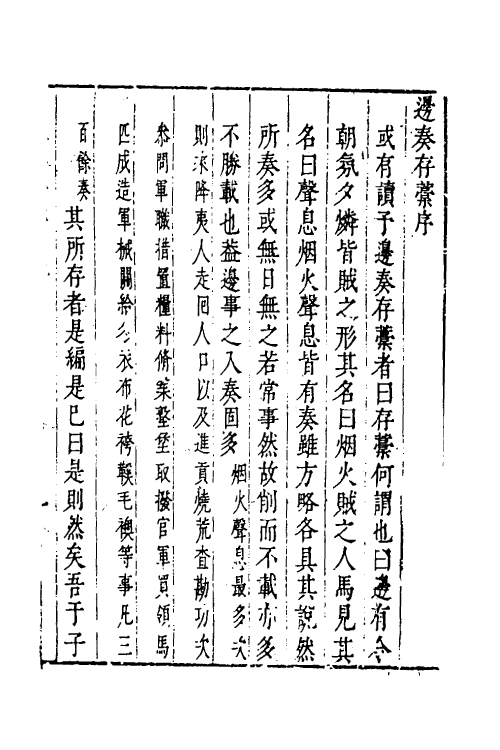 邊奏存藳序
或有讀予邊奏存藳者曰存藳何謂也曰邊有令
朝氛夕燐皆賊之形其名曰烟火賊之人馬見其
名曰聲息烟火聲息皆有奏雖方略各具其說然
所奏多或無日無之若常事然故削而不載亦多
不勝載也葢邊事之入奏固多烟火聲息最多次
則來降夷人走回人口以及進貢燒荒查勘功次
叅問軍職措置糧料脩築墪堡取撥官軍買領馬
匹成造軍械關給冬衣布花袴鞵毛襖等事凡三
百餘奏其所存者是編是已曰是則然矣吾于子